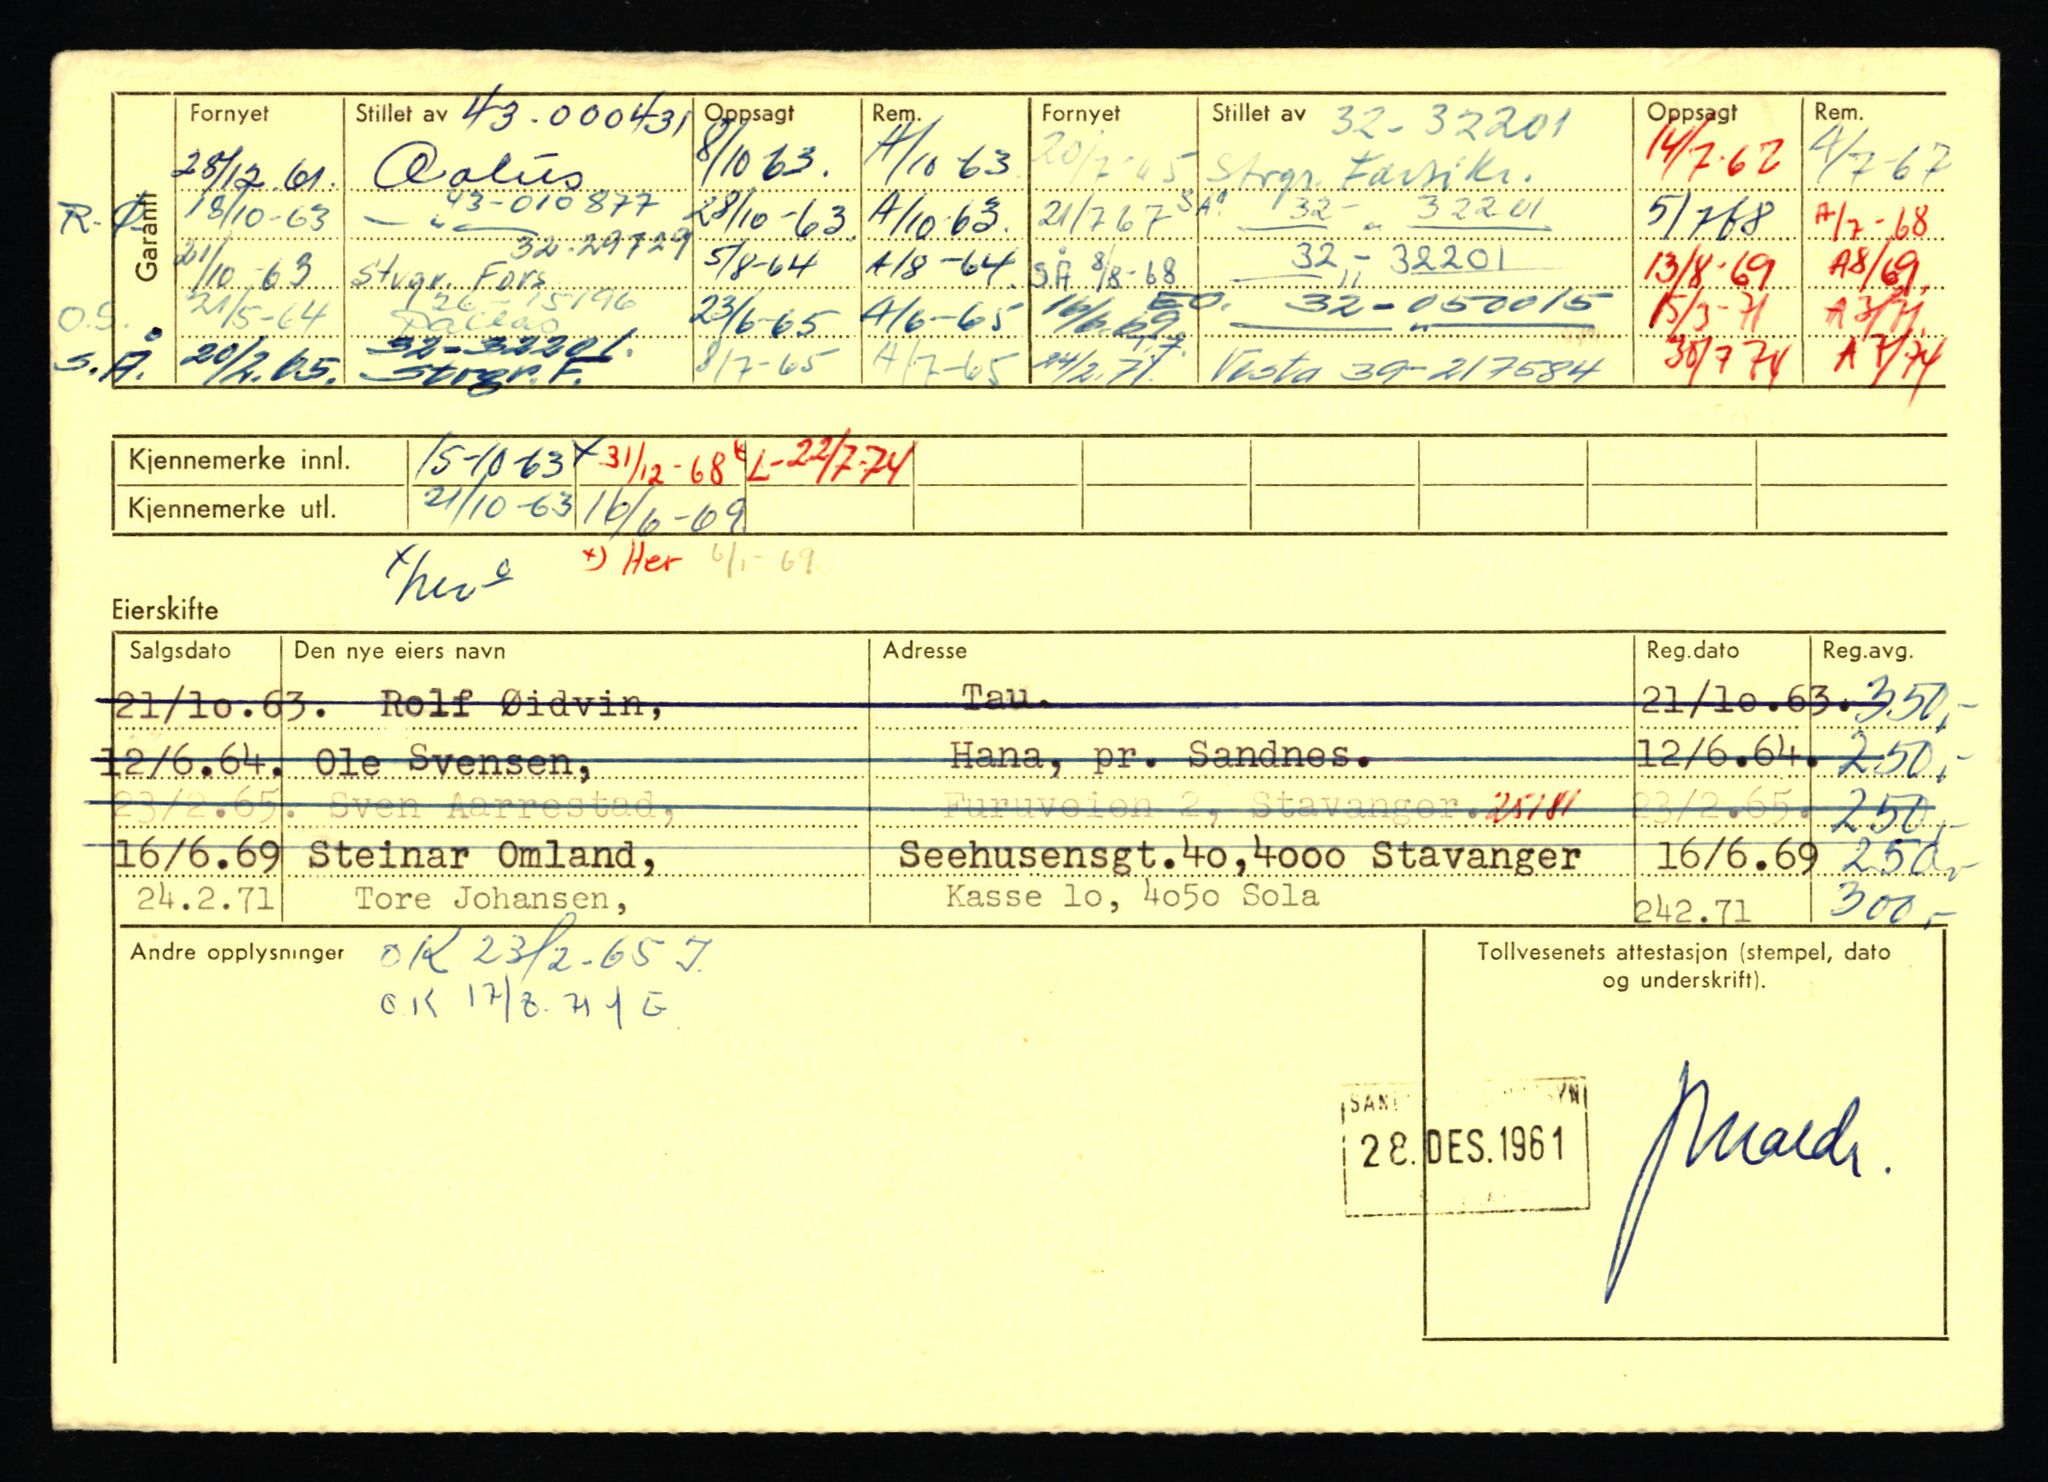 Garanti
Fornyet Stillet av 43-000431 Oppsagt Rem. Fornyet Stillet av 32-32201 Oppsagt Rem.
28/12.61. Aolus 8/10-63. A/10-63 20/7-65 Strgr. Farsikr. 14/7-67 A/7-67
R.Ø 18/10-63 — " — 43-010877 28/10-63 A/10-63. 21/767 SÅ 32- " 32201 5/768 A/7-68
21/10-63 Stvgr. Fors 32-29729 5/8-64 A/8-64 SÅ 8/8-68 32 - 32201 13/8-69 A8/69
O.S. 21/5-64 Pallas 26-15196 23/6-65 A/6-65 16/6.69 EO. 32-050015 15/3-71 A3/71
S.Å. 20/2.65. 32-32201. Strgr. F. 8/7-65 A/7-65 24/2.71. Vesta 39-217584 30/7 74 A7/74
Kjennemerke innl. 15-10-63 x 31/12-68 x L-22/7-74
Kjennemerke utl. 21/10-63 16/6-69
x her x) Her 6/1-69
Eierskifte
Salgsdato Den nye eiers navn Adresse Reg.dato Reg.avg.
21/10.63. Rolf Øidvin, Tau. 21/10.63. 350,-
12/6.64. Ole Svensen, Hana, pr. Sandnes. 12/6.64. 250,-
23/2.65. Sven Aarrestad, Furuveien 2, Stavanger. 25181 23/2.65. 250,-
16/6.69 Steinar Omland, Seehusensgt.40,4000 Stavanger 16/6.69 250,-
24.2.71 Tore Johansen, Kasse 10, 4050 Sola 242.71 300,-
Andre opplysninger OK 23/2-65 J.
OK 17/
Tollvesenets attestasjon (stempel, dato
og underskrift).
28. DES. 1961